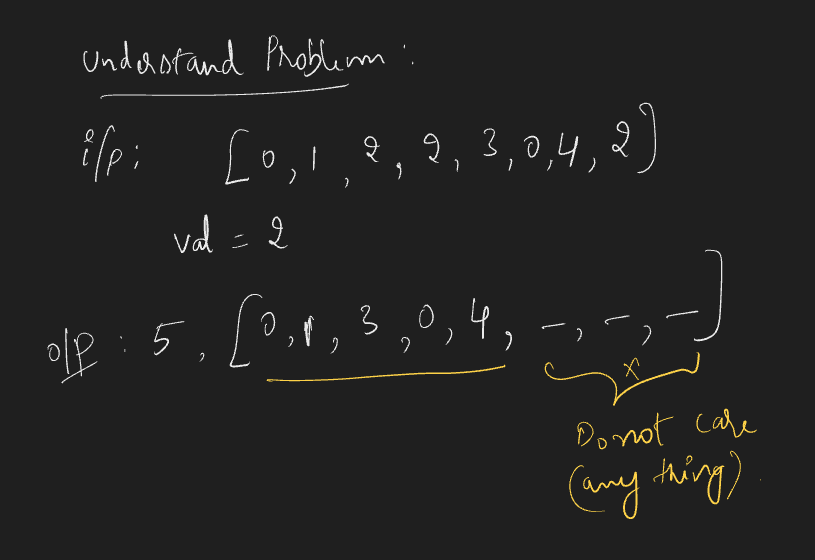 Understand Problem :
i/p : [0, 1, 2, 2, 3, 0, 4, 2]
val = 2
o/p : 5, [0, 1, 3, 0, 4, -, -, -]
x
Do not care
(any thing).